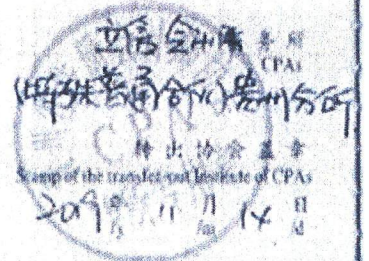 立信会计师事务所
CPAs
(特殊普通合伙)贵州分所
转出协会盖章
Stamp of the transfer-out Institute of CPAs
2019年11月14日
/y /m /d